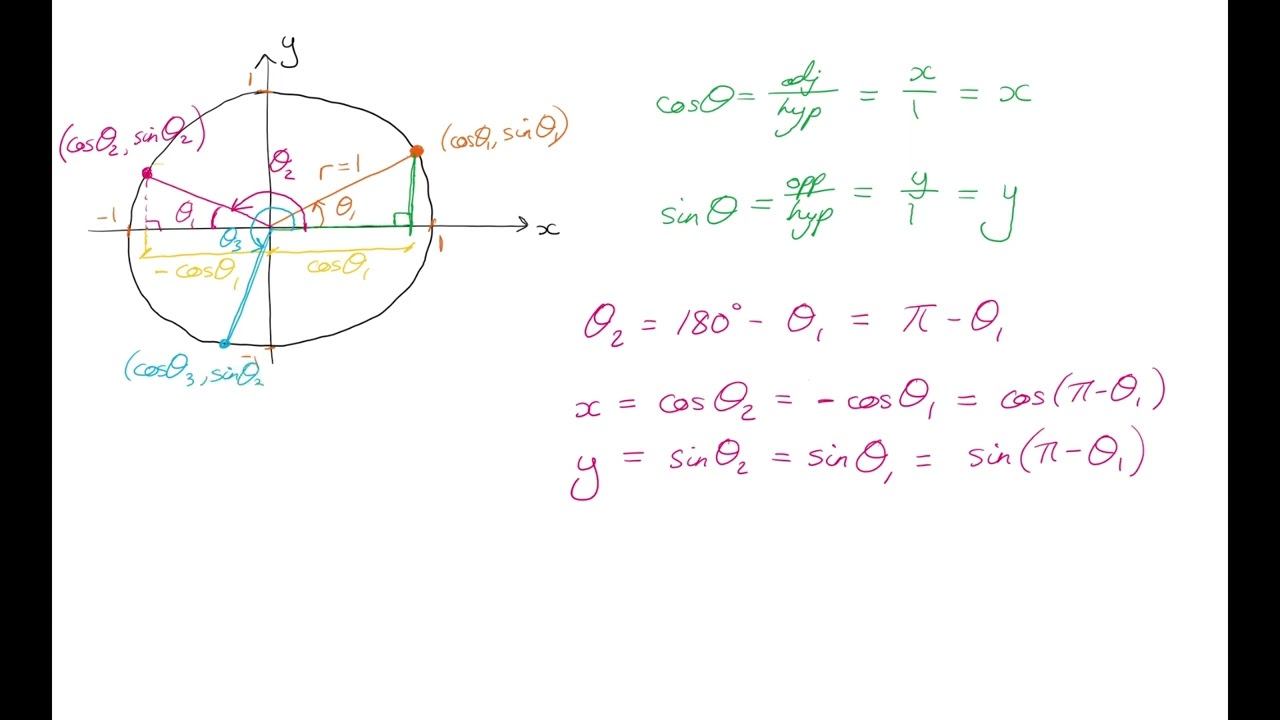 y
1
(cosθ₂, sinθ₂)
(cosθ₁, sinθ₁)
θ₂
r=1
-1
θ₁
θ₁
θ₃
1
x
-cosθ₁
cosθ₁
-1
(cosθ₃, sinθ₂
cosθ = adj/hyp = x/1 = x
sinθ = opp/hyp = y/1 = y
θ₂ = 180° - θ₁ = π - θ₁
x = cosθ₂ = -cosθ₁ = cos(π-θ₁)
y = sinθ₂ = sinθ₁ = sin(π-θ₁)